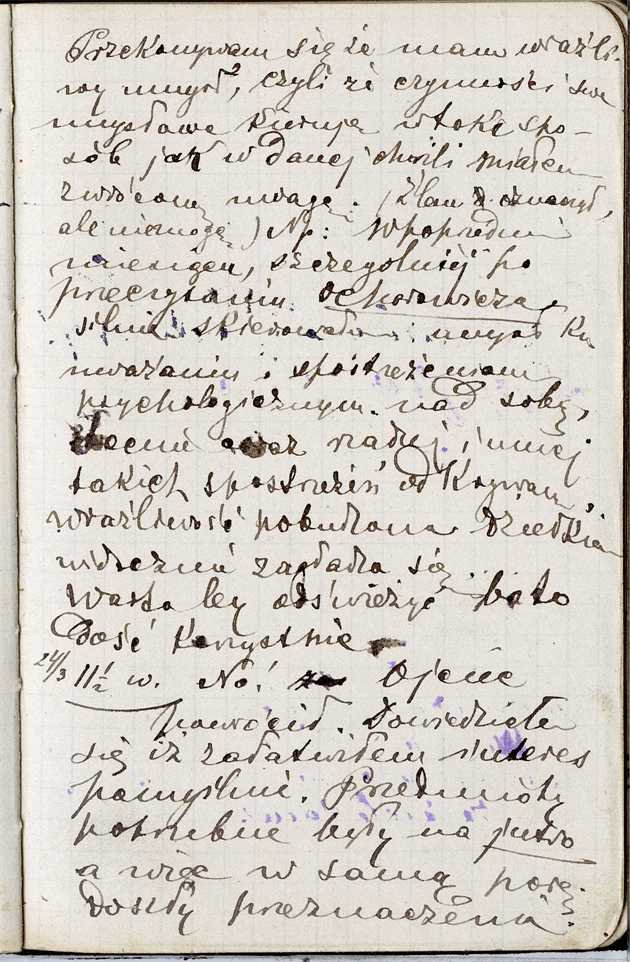 Przekonywam się że mam wraźli-
wy umysł, czyli że czynności swe
umysłowe kieruję w takę spo-
sób jak w danej chwili miałem
zwróconą uwagę. (Źlem oznaczył,
ale niemogę) Np: w poprzedni
miesiącu, szczególniej po
przeczytaniu Ochorowicza,
silnie skierowałem umysł ku
uważaniu i spostrzeżeniom
psychologicznym nad sobą,
obecnie coraz rzadziej i mniej
takich spostrzeżeń odkrywam,
wraźliwość pobudzona dziełkiem
widocznie zagładza się
Warto by odświeżyć bo to
Dość korzystnie
24/3 11½ w. No! Ojciec
powrócił. Dowiedziałem
się iż załatwiłem interes
pomyślnie. Przedmioty
potrzebne były na jutro
a więc w samą porę
doszły przeznaczenia.